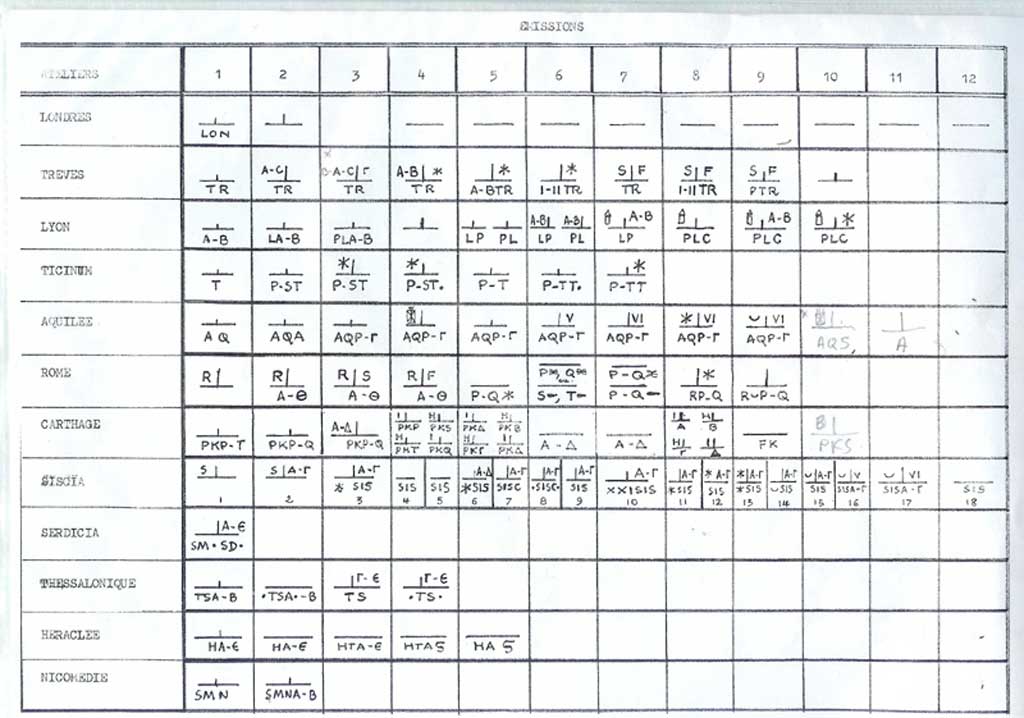 EMISSIONS
ATELIERS 1 2 3 4 5 6 7 8 9 10 11 12
LONDRES
LON
TREVES A-C A-C Γ A-B * * * S F S F S F
TR TR TR TR A-BTR I-II TR TR I-II TR PTR
LYON A-B A-B A-B A-B *
A-B LA-B PLA-B LP PL LP PL LP PLC PLC PLC
TICINUM * * *
T P-ST P-ST P-ST. P-T P-TT. P-TT
AQUILEE V VI * VI VI
AQ AQA AQP-Γ AQP-Γ AQP-Γ AQP-Γ AQP-Γ AQP-Γ AQP-Γ AQS, A
ROME R R R S R F *
A-Θ A-Θ A-Θ P-Q* P-Q* P-Q RP-Q P-Q
CARTHAGE A-Δ I PKP H PKS I PKΔ H PKB I A H B B
PKP-T PKP-Q PKP-Q H PKT I PKQ PKΓ PKΔ A-Δ A-Δ H Γ Δ FK PKS
SISCIA S S A-Γ A-Γ A-Δ A-Γ A-Γ A-Γ A-Γ A-Γ * A-Γ * A-Γ A-Γ A-Γ V VI
* SIS SIS SIS *SIS SISC •SISC• SIS XXISIS *SIS SIS *SIS SIS SIS SISA-Γ SISA-Γ SIS
1 2 3 4 5 6 7 8 9 10 11 12 13 14 15 16 17 18
SERDICIA A-Є
SM•SD•
THESSALONIQUE Γ-Є Γ-Є
TSA-B •TSA•-B TS •TS•
HERACLEE
HA-Є HA-Є HTA-Є HTAS HA S
NICOMEDIE
SMN SMNA-B